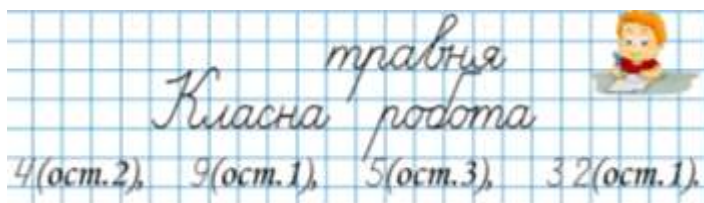 травня
Класна робота
4(ост.2), 9(ост.1), 5(ост.3), 32(ост.1).